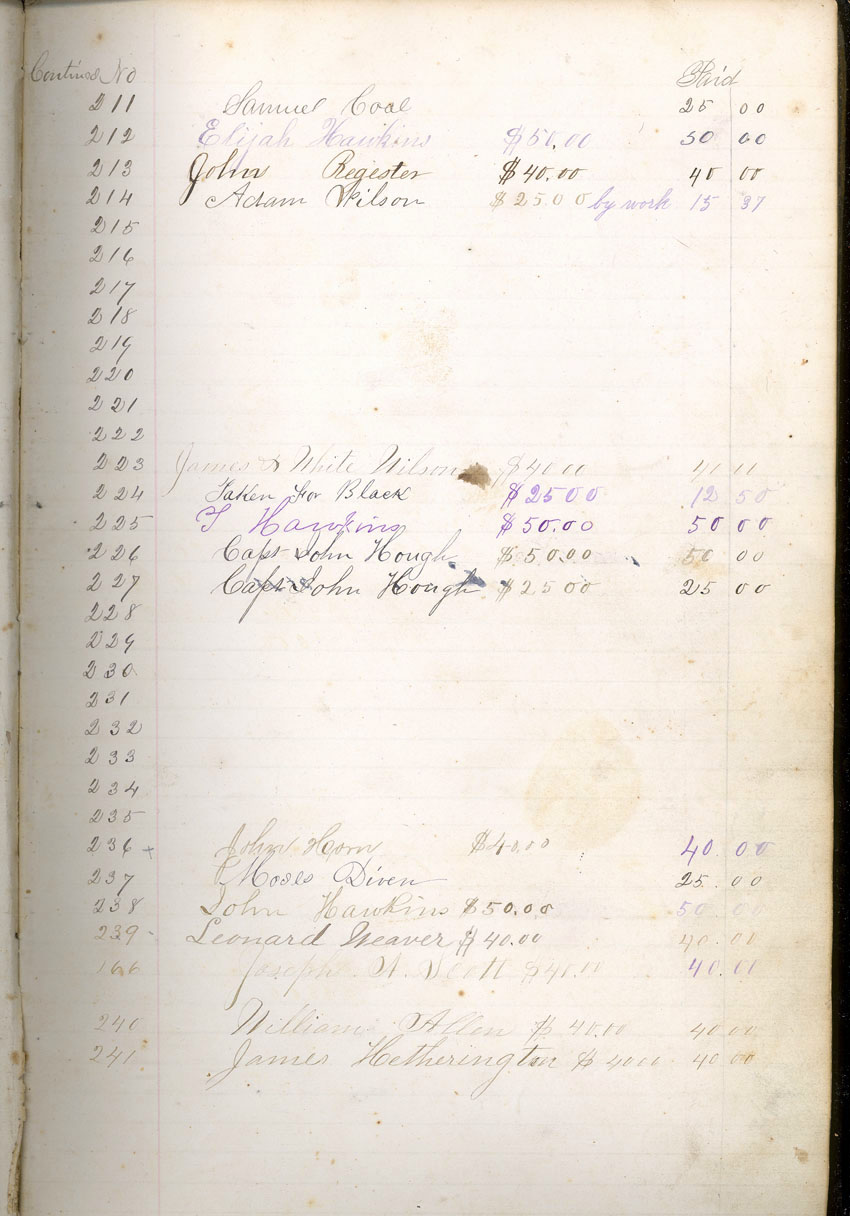 Continued No Paid
211 Samuel Coal 25 00
212 Elijah Hawkins $50.00 50 00
213 John Regester $40.00 40 00
214 Adam Wilson $25.00 by work 15 37
215
216
217
218
219
220
221
222
223 James & White Wilson $40 00 40 00
224 Taken for Black $25 00 12 50
225 T Hawkins $50.00 50 00
226 Capt John Hough $50.00 50 00
227 Capt John Hough $25 00 25 00
228
229
230
231
232
233
234
235
236 + John Horn $40.00 40 00
237 Moses Diven 25 00
238 John Hawkins $50.00 50 00
239 Leonard Weaver $40.00 40.00
166 Joseph W. Scott $40.00 40.00
240 William Allen $40.00 40 00
241 James Hetherington $40 00 40 00